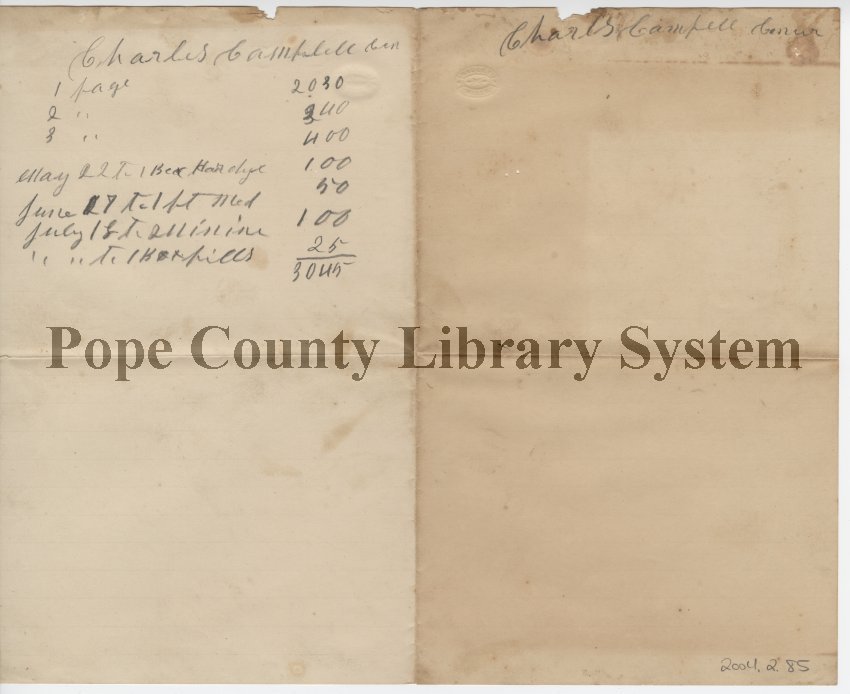 Charles Campbell Cen
1 page 2030
2 " 340
3 " 400
May 22 To 1 Box 100
June 27 To 1 pt Med 50
July 18 To 100
" " To 1 Box pills 25
3045
Charls Campell
Pope County Library System
2004.2.85